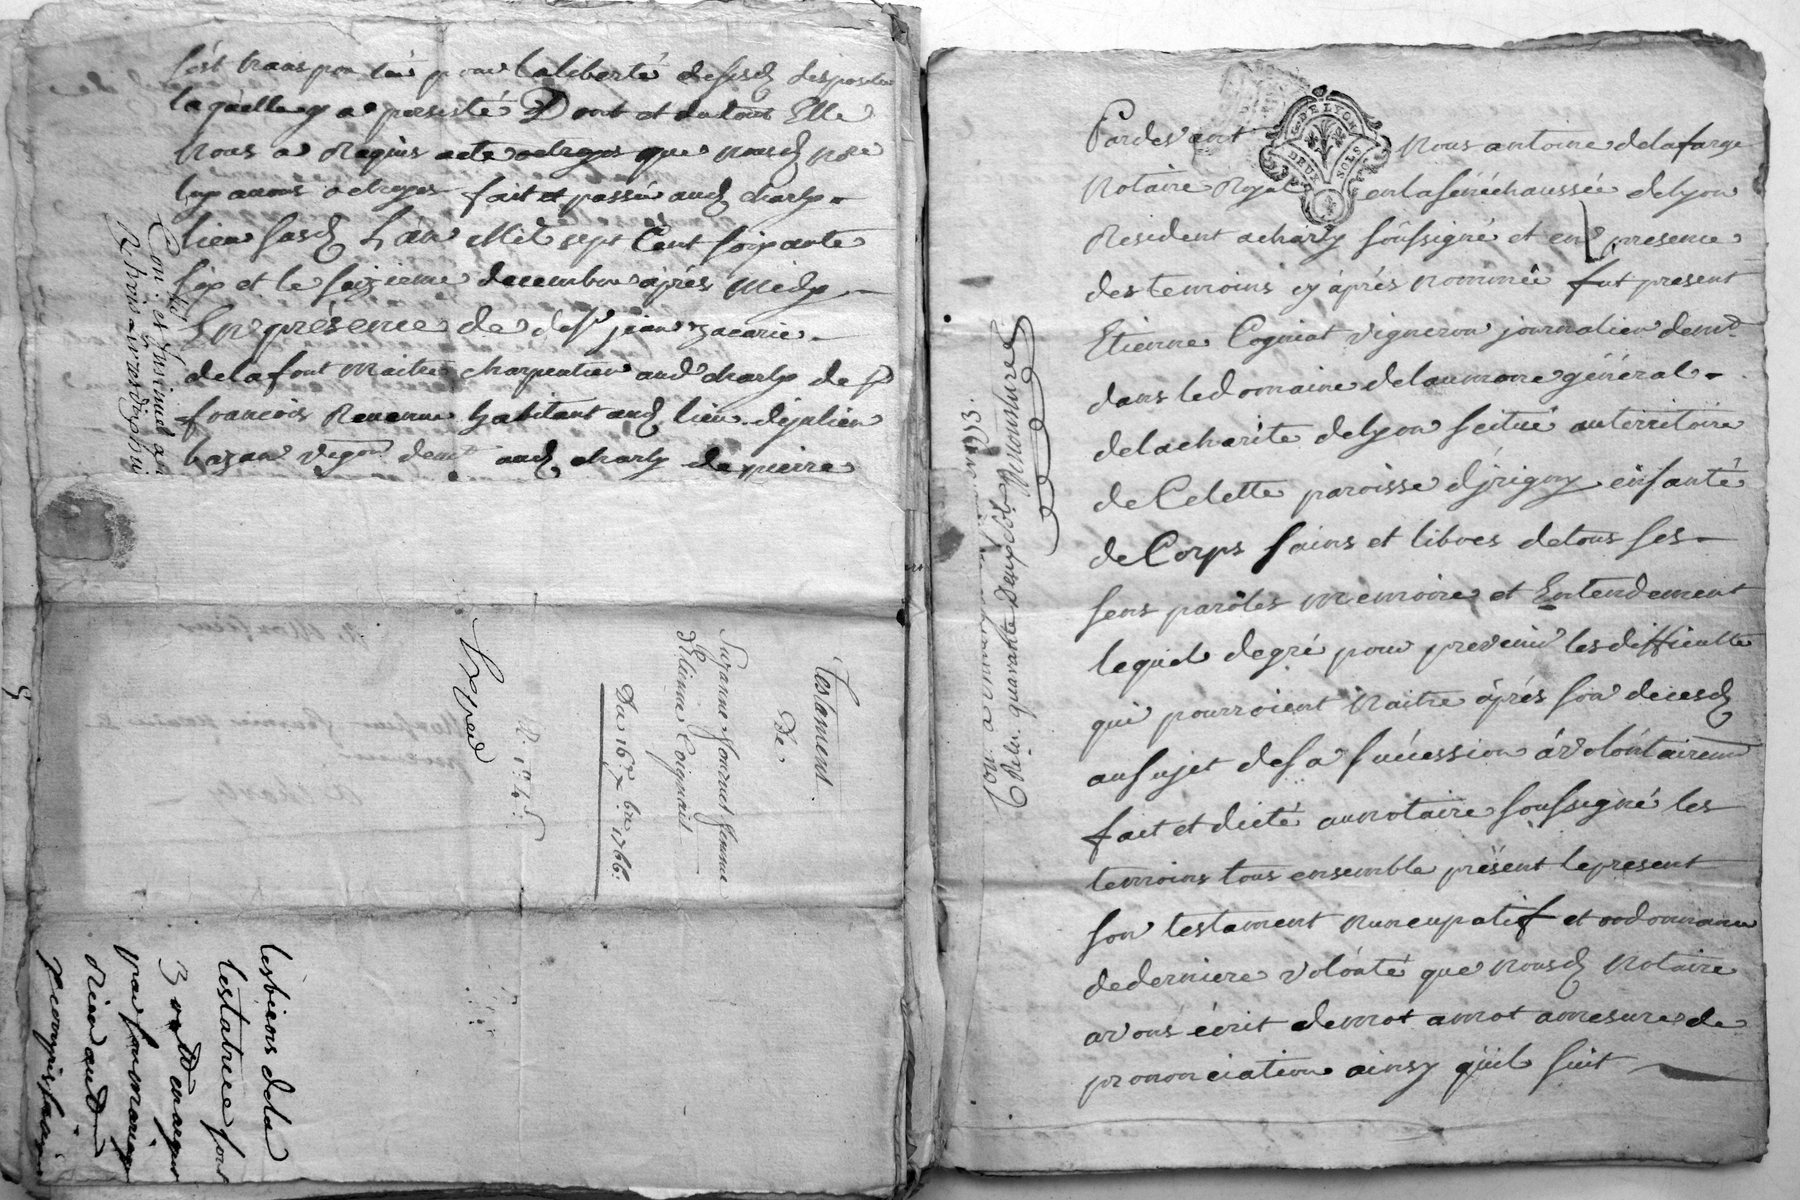 s'est transporté pour la liberté de sesd. desposi
laquelle y a persisté Dont et du tout Elle
Nous a Requis acte octroyé que nousd. No.re
luy avons octroyer fait et passé aud. charly
lieu susd. L'an Mil sept Cent soixante
six et le seizieme decembre après Midy
En présence de de sr. jean zacarie
delafont Maitre charpentier aud. charly de sr.
francois Revenne habitant aud. lieu déjulien
bazan vigon demt. aud. charly de pierre
Con.lé et Insinué a
Testament.
De
Suzanne Journet femme
d'Etienne Coignait
Du 16e. xbre 1766.
Expedié
les biens de la
testatrice sont
par son mariage
Rien aud.
DE LYON
DEUX SOLS
Pardevant Nous antoine delafarge
Notaire Royal en la sénéchaussée de lyon
Resident a charly soussigné et en presence
des temoins cy après nommée fut present
Etienne Cogniat vigneron journalier demt.
dans le domaine de laumone général
de la charité de lyon scitué au territoire
de Celette paroisse d'jrigny en santé
de Corps sains et libres de tous ses
sens paroles memoire et Entendement
lequel de gré pour prevenir les difficulte
qui pourroient Naitre après son decesd
au sujet de sa sucession a volontairemt
fait et dicté au notaire soussigné les
temoins tous ensemble présent le present
son testament nuncupatif et ordonnance
de derniere volonté que nousd. Notaire
avons écrit de mot a mot a mesure de
prononciation ainsy qu'il suit